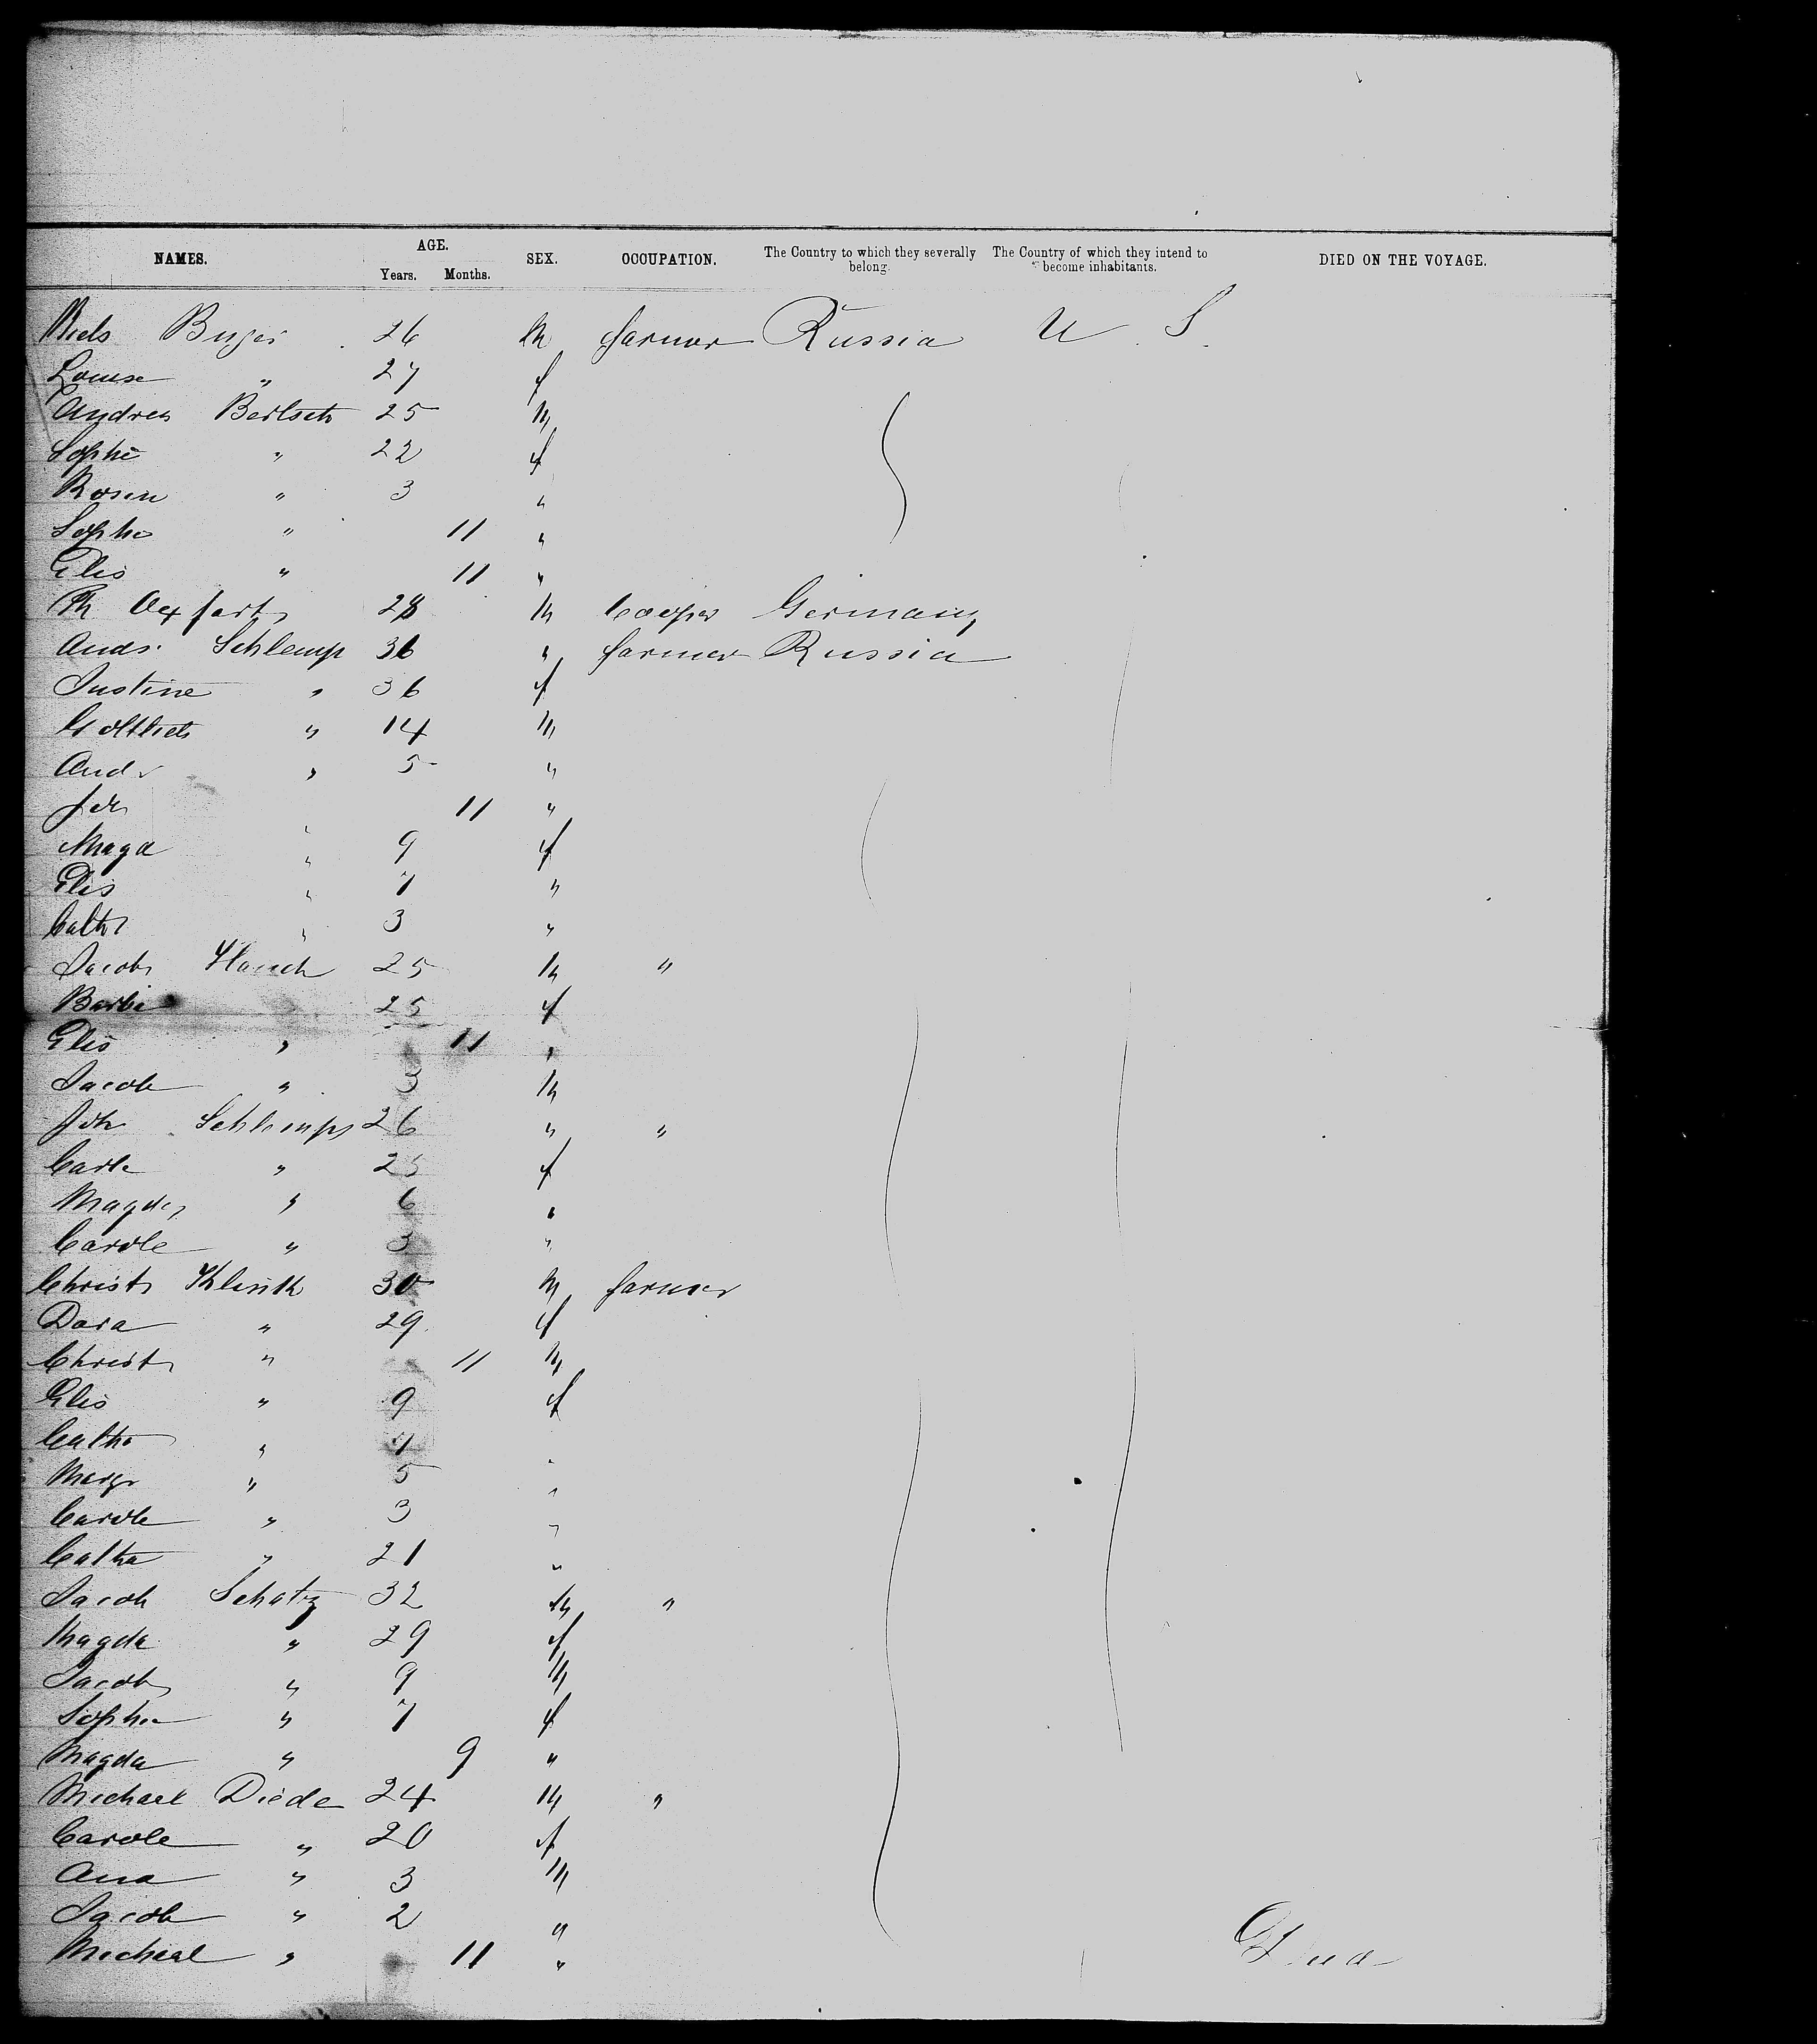 NAMES. AGE. Years. Months. SEX. OCCUPATION. The Country to which they severally belong. The Country of which they intend to become inhabitants. DIED ON THE VOYAGE.
26 m farmer Russia U. S.
Louise " 27 f
Andreas Bertsch 25 m
Sophie " 22 f
Rosin " 3 "
Sophie " 11 "
Elis " 11 "
28 m Cooper Germany
Andr. Schlemp 36 " farmer Russia
Justine " 36 f
Gottlieb " 14 m
Andr " 5 "
Joh 11 "
Magd " 9 f
Elis " 7 "
Cath " 3 "
Jacob Hauch 25 m "
Barba 25 f
Elis " 11 "
Jacob " 3 m
Joh Schlemp 26 " "
Carle " 25 f
Magda " 6 "
Carole " 3 "
Christ Klenk 30 m farmer
Dora " 29 f
Christ " 11 m
Elis " 9 f
Catha " 7
Margr " 5 "
Carole " 3 "
Catha " 21 "
Jacob Schatz 32 m "
Magda " 29 f
Jacob " 9 m
Sophie " 7 f
Magda " 9 "
Michael Diede 24 m "
Carole " 20 f
Ana " 3 m
Jacob " 2 "
Michael " 11 " Died